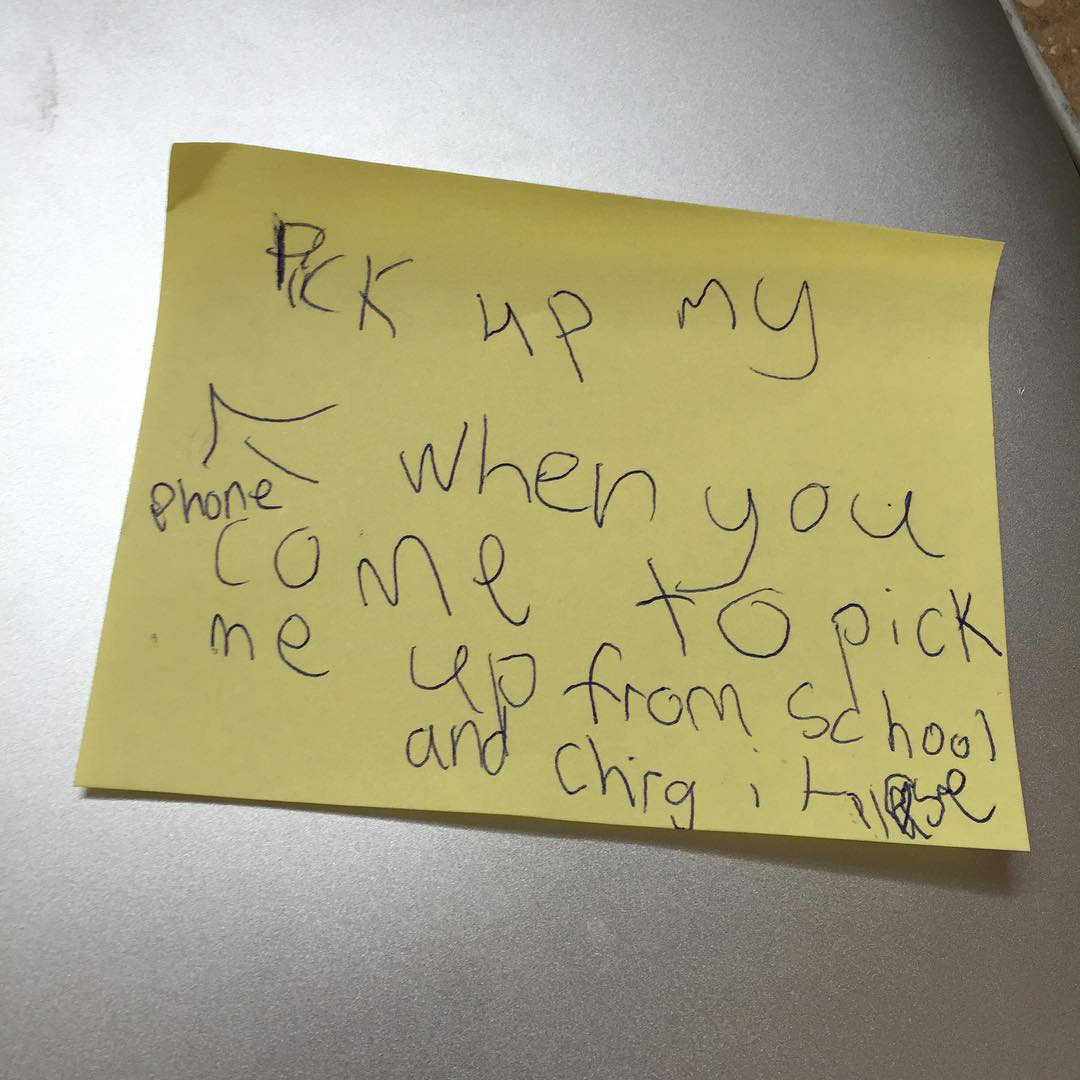 Pick up my
phone when you
come to pick
me up from school
and chirg it please